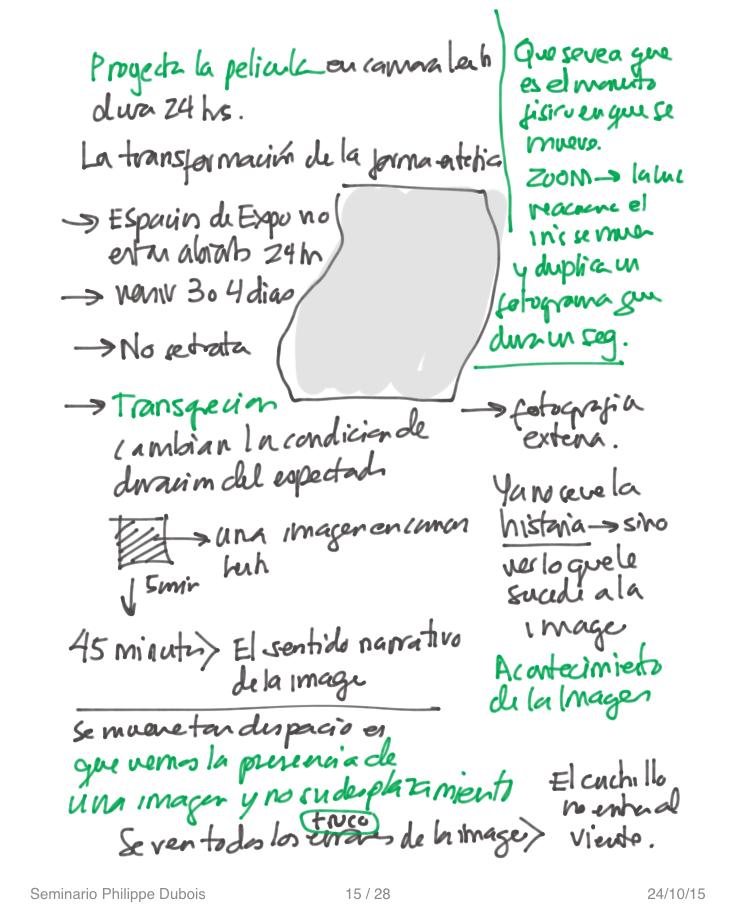 Proyecta la pelicula en camara lenta
dura 24 hs.
La transformación de la forma estetica
→ Espacios de Expo no
estan abiertos 24 hs
→ venir 3 o 4 dias
→ No se trata
→ Transgrecion
cambian la condicion de
duracion del espectador
→ una imagen en camara
lenta
↓ 5 min
45 minutos > El sentido narrativo
de la image
Se mueve tan despacio es
que vemos la presencia de
una imagen y no su desplazamiento
truco
Se ven todos los errores de la image >
El cuchillo
no entra al
viente.
Que se vea que
es el momento
en que se
mueve.
ZOOM → la luz
reacciona el
iris se mueve
y duplica un
fotograma que
dura un seg.
→ fotografia
extena.
Ya no se ve la
historia → sino
ver lo que le
sucede a la
image
Acontecimieto
de la Imagen
Seminario Philippe Dubois
15 / 28
24/10/15